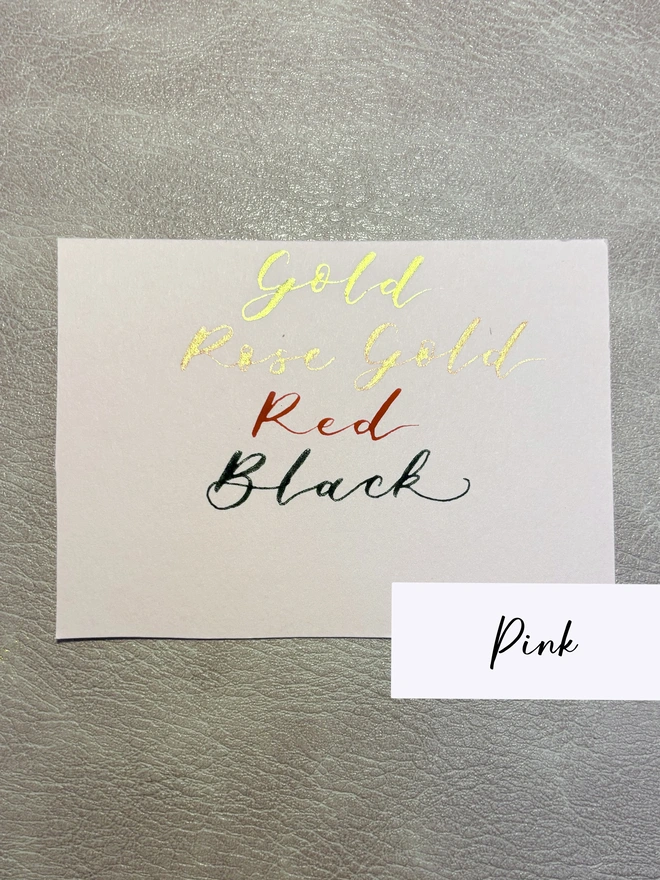 Gold
Rose Gold
Red
Black
Pink